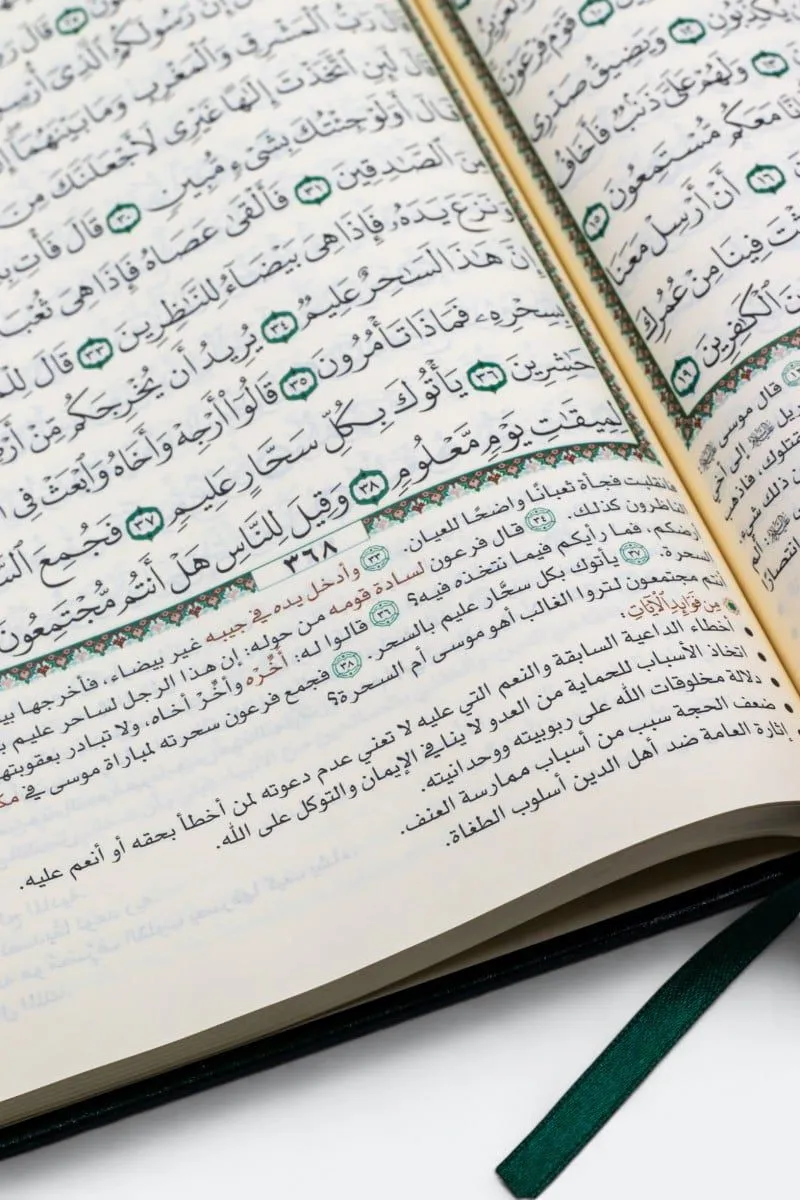 ١٠ قَوْمَ فِرْعَوْنَ
يُكَذِّبُونِ ١٢ وَيَضِيقُ صَدْرِى
١٣ وَلَهُمْ عَلَىَّ ذَنۢبٌ فَأَخَافُ
مَعَكُم مُّسْتَمِعُونَ ١٥
١٦ أَنْ أَرْسِلْ مَعَنَا
فِينَا مِنْ عُمُرِكَ
ٱلْكَٰفِرِينَ ١٩
قال موسى
إلى أخي
فاذهب
إِنَّ رَسُولَكُمُ ٱلَّذِىٓ
رَبُّ ٱلْمَشْرِقِ وَٱلْمَغْرِبِ وَمَا بَيْنَهُمَآ
قَالَ لَئِنِ ٱتَّخَذْتَ إِلَٰهًا غَيْرِى لَأَجْعَلَنَّكَ مِنَ
قَالَ أَوَلَوْ جِئْتُكَ بِشَىْءٍ مُّبِينٍ ٣٠ قَالَ فَأْتِ
مِنَ ٱلصَّٰدِقِينَ ٣١ فَأَلْقَىٰ عَصَاهُ فَإِذَا هِىَ
وَنَزَعَ يَدَهُۥ فَإِذَا هِىَ بَيْضَآءُ لِلنَّٰظِرِينَ ٣٣ قَالَ
إِنَّ هَٰذَا لَسَٰحِرٌ عَلِيمٌ ٣٤ يُرِيدُ أَن يُخْرِجَكُم مِّنْ
بِسِحْرِهِۦ فَمَاذَا تَأْمُرُونَ ٣٥ قَالُوٓا۟ أَرْجِهْ وَأَخَاهُ وَٱبْعَثْ فِى
حَٰشِرِينَ ٣٦ يَأْتُوكَ بِكُلِّ سَحَّارٍ عَلِيمٍ ٣٧ فَجُمِعَ
لِمِيقَٰتِ يَوْمٍ مَّعْلُومٍ ٣٨ وَقِيلَ لِلنَّاسِ هَلْ أَنتُم مُّجْتَمِعُونَ
٣٦٨
فانقلبت فجأة ثعبانًا واضحًا للعيان. ٣٣ وأدخل يده في جيبه غير بيضاء، فأخرجها
الناظرون كذلك. ٣٤ قال فرعون لسادة قومه من حوله: إن هذا الرجل لساحر عليم
أرضكم، فما رأيكم فيما نتخذه فيه؟ ٣٦ قالوا له: أَخِّرْه وأَخِّرْ أخاه، ولا تبادر بعقوبتهما
السحرة. ٣٧ يأتوك بكل سحَّار عليم بالسحر. ٣٨ فجمع فرعون سحرته لمباراة موسى في
أنتم مجتمعون لتروا الغالب أهو موسى أم السحرة؟
مِن فَوَائِدِ الآيَاتِ:
• أخطاء الداعية السابقة والنعم التي عليه لا تعني عدم دعوته لمن أخطأ بحقه أو أنعم عليه.
• اتخاذ الأسباب للحماية من العدو لا ينافي الإيمان والتوكل على الله.
• دلالة مخلوقات الله على ربوبيته ووحدانيته.
• ضعف الحجة سبب من أسباب ممارسة العنف.
• إثارة العامة ضد أهل الدين أسلوب الطغاة.